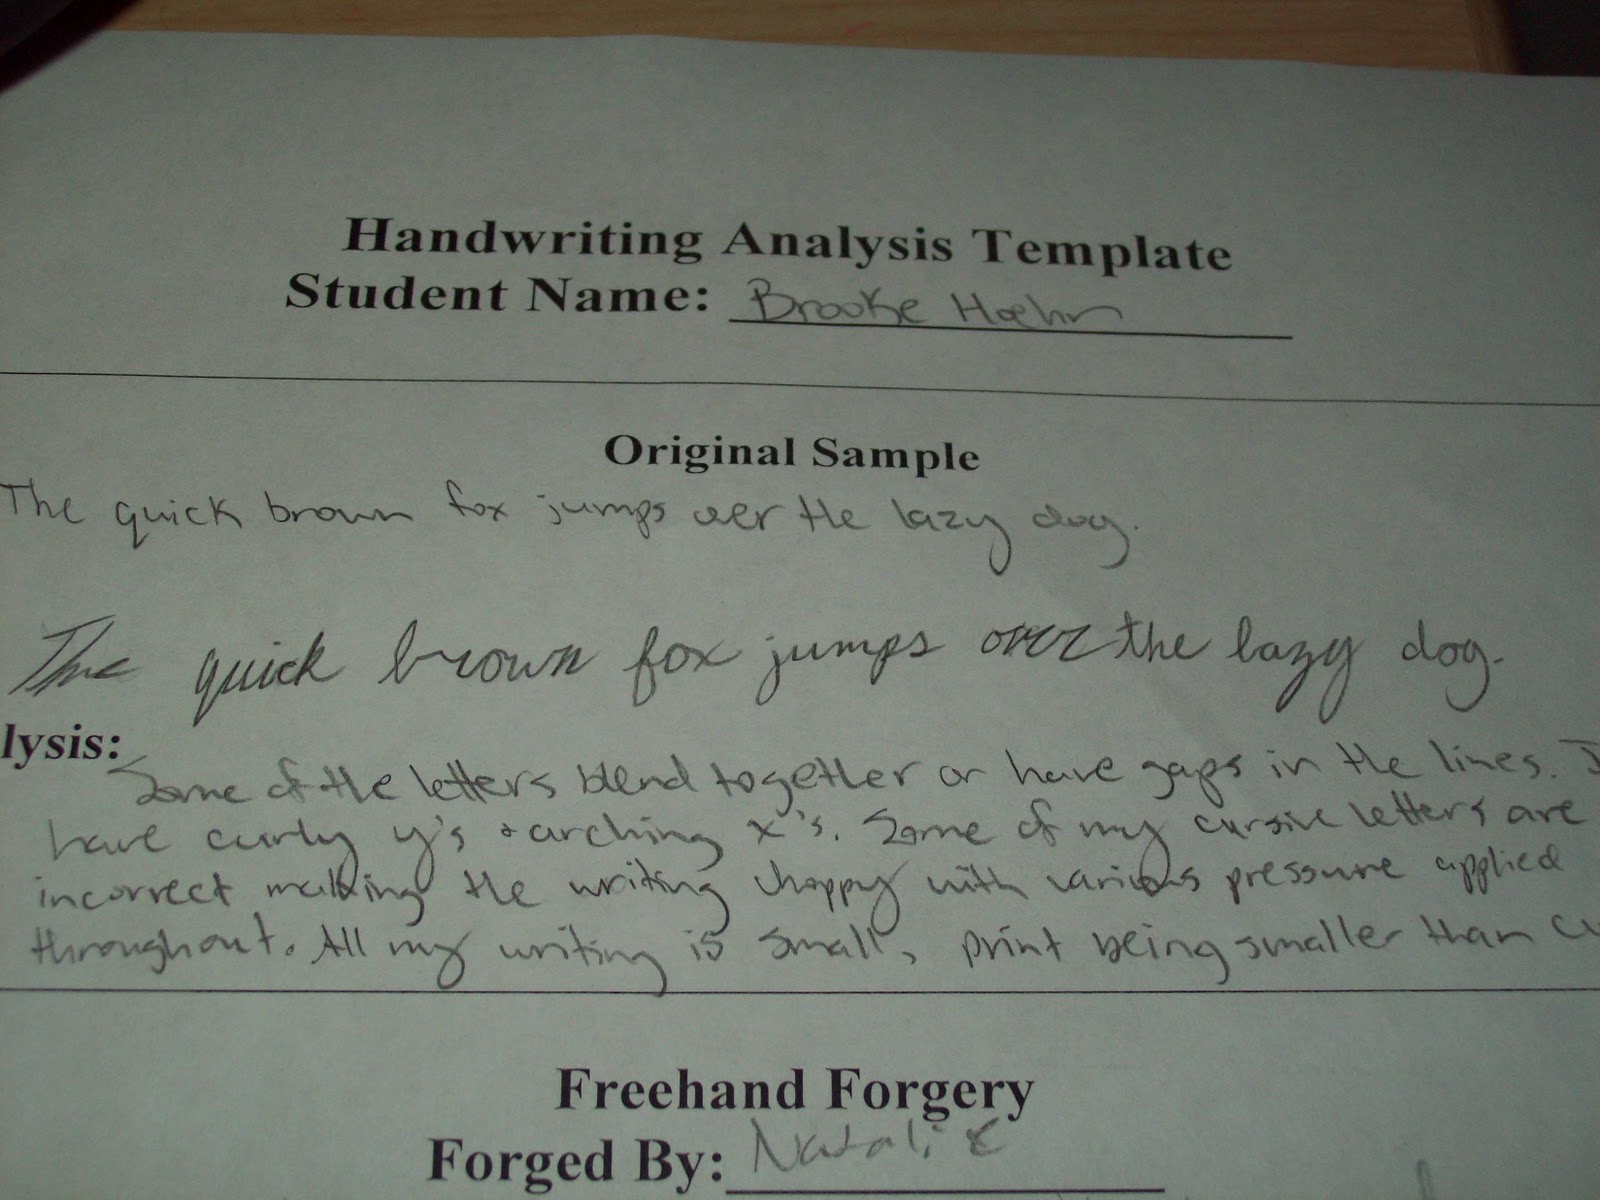 Handwriting Analysis Template
Student Name: Brooke Hoehn
Original Sample
The quick brown fox jumps over the lazy dog.
The quick brown fox jumps over the lazy dog.
lysis:
Some of the letters blend together or have gaps in the lines. I
have curly y's & arching x's. Some of my cursive letters are
incorrect making the writing choppy with various pressure applied
throughout. All my writing is small, print being smaller than cu
Freehand Forgery
Forged By: Natalie